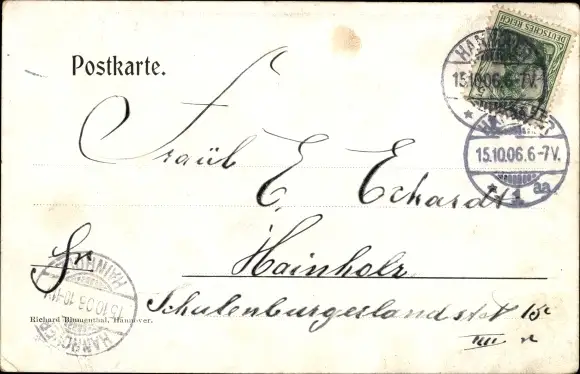 Postkarte.
DEUTSCHES REICH
HANNOVER
15.10.06.6-7V.
HANNOVER
15.10.06.6-7V.
* 1 aa
Fräul E. Eckardt
Hainholz
Schulenburgerlandstr 15c
HAINHOLZ
HANNOVER
Richard Blumenthal, Hannover.